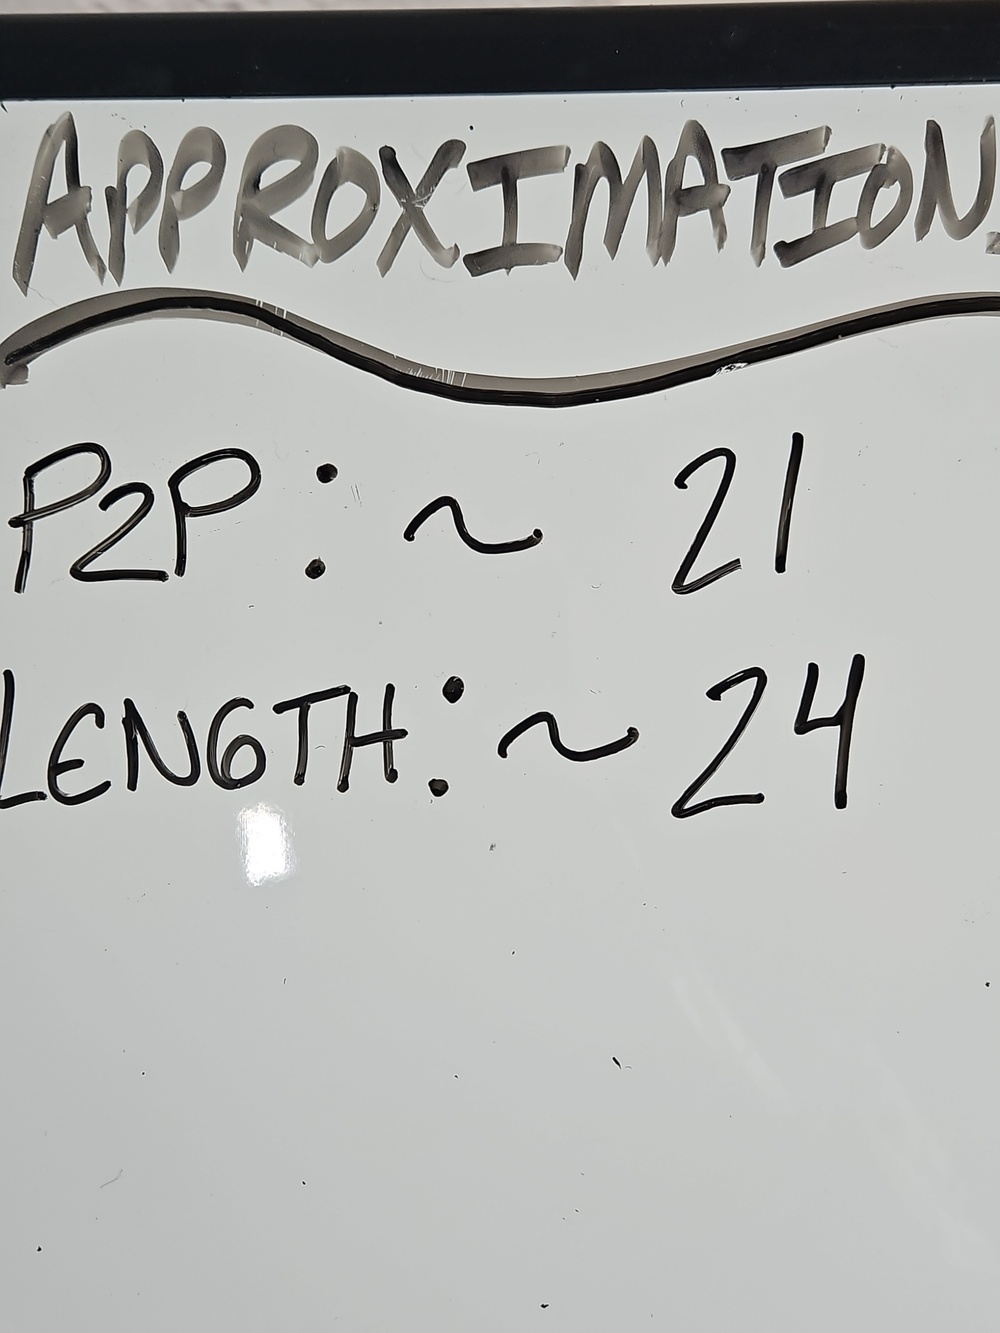 APPROXIMATION
P2P: ~ 21
LENGTH: ~ 24